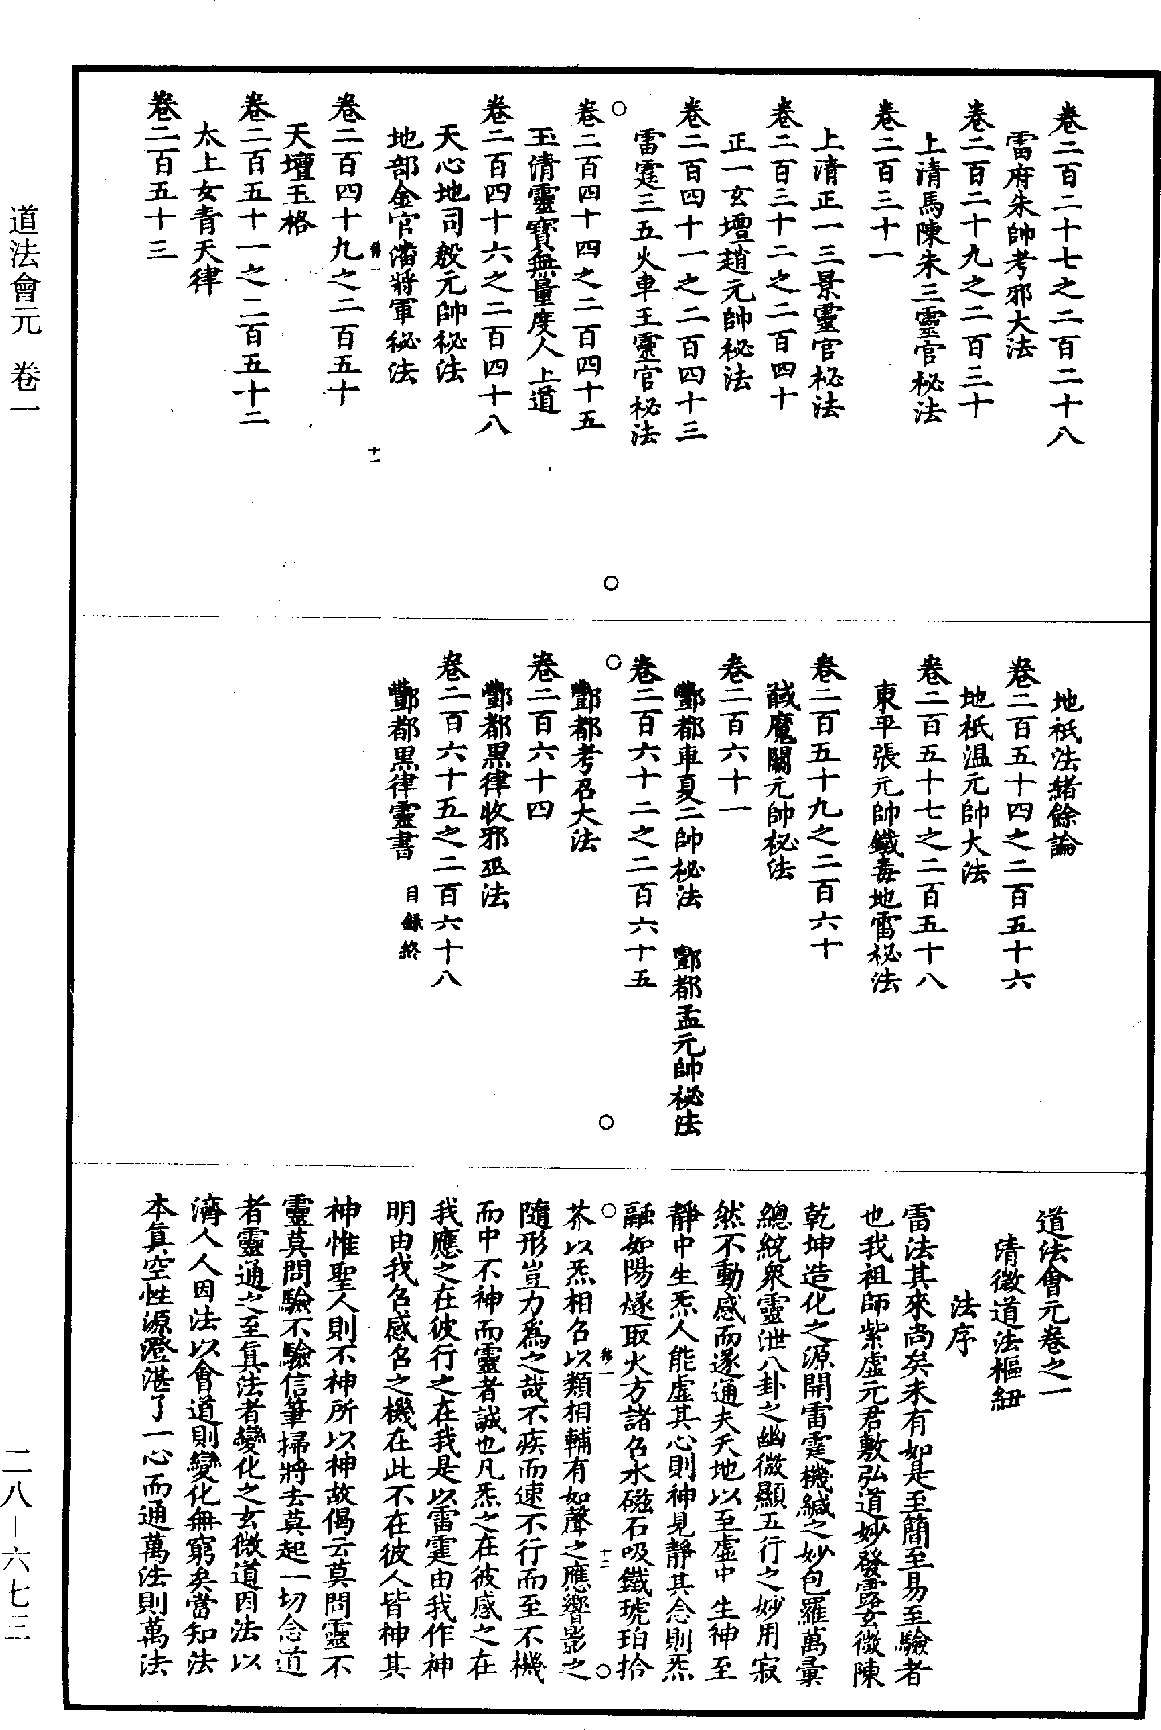 道法會元 卷一
二八—六七三
卷二百二十七之二百二十八
雷府朱帥考邪大法
卷二百二十九之二百三十
上清馬陳朱三靈官秘法
卷二百三十一
上清正一三景靈官秘法
卷二百三十二之二百四十
正一玄壇趙元帥秘法
卷二百四十一之二百四十三
雷霆三五火車王靈官秘法
卷二百四十四之二百四十五
玉清靈寶無量度人上道
卷二百四十六之二百四十八
天心地司殷元帥秘法
地部金官潘將軍秘法
十一
卷二百四十九之二百五十
天壇玉格
卷二百五十一之二百五十二
太上女青天律
卷二百五十三
地祇法緒餘論
卷二百五十四之二百五十六
地祇溫元帥大法
卷二百五十七之二百五十八
東平張元帥鐵毒地雷秘法
卷二百五十九之二百六十
馘魔關元帥秘法
卷二百六十一
酆都車夏二帥秘法 酆都孟元帥秘法
卷二百六十二之二百六十五
酆都考召大法
卷二百六十四
酆都黑律收邪巫法
卷二百六十五之二百六十八
酆都黑律靈書 目錄終
道法會元卷之一
清微道法樞紐
法序
雷法其來尚矣未有如是至簡至易至驗者
也我祖師紫虛元君敷弘道妙發露玄微陳
乾坤造化之源開雷霆機緘之妙包羅萬彙
總統衆靈泄八卦之幽微顯五行之妙用寂
然不動感而遂通夫天地以至虛中生神至
靜中生炁人能虛其心則神見靜其念則炁
融如陽燧取火方諸召水磁石吸鐵琥珀拾
芥以炁相召以類相輔有如聲之應響影之
十二
隨形豈力為之哉不疾而速不行而至不機
而中不神而靈者誠也凡炁之在彼感之在
我應之在彼行之在我是以雷霆由我作神
明由我召感召之機在此不在彼人皆神其
神惟聖人則不神所以神故偈云莫問靈不
靈莫問驗不驗信筆掃將去莫起一切念道
者靈通之至真法者變化之玄微道因法以
濟人人因法以會道則變化無窮矣當知法
本真空性源澄湛了一心而通萬法則萬法